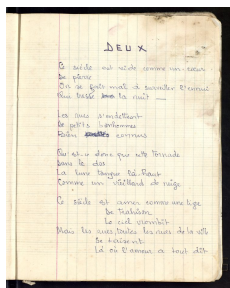 DEUX
Ce siècle est vide comme un cœur
De pierre
On se fait mal à surveiller l'ennui
Qui tresse la nuit
Les rues s'endettent
De petits bonhommes
connus
Qui est-ce donc que cette tornade
Dans le dos
La lune tangue là-haut
Comme un vieillard de neige
Ce siècle est amer comme une tige
De trahison
Le ciel vrombit
Mais les rues toutes les rues de la ville
Se tirèrent
Là où l'amour a tout dit